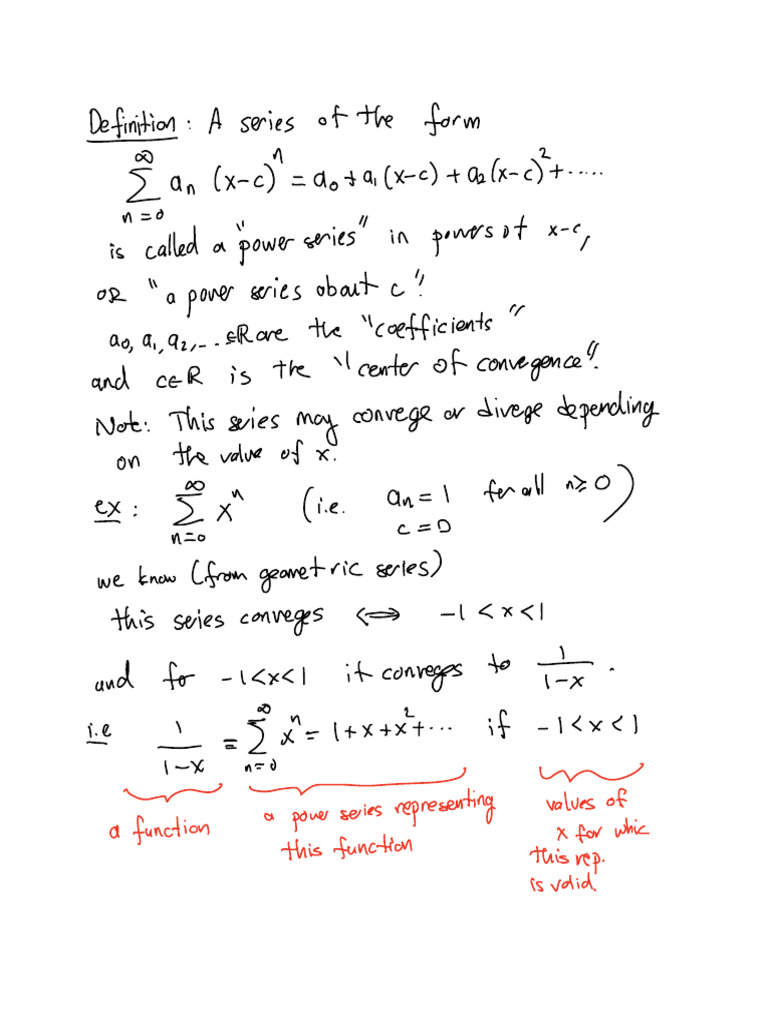 Definition: A series of the form
∞ ∑ n=0 aₙ (x-c)ⁿ = a₀ + a₁(x-c) + a₂(x-c)² + .....
is called a "power series" in powers of x-c,
OR "a power series about c".
a₀, a₁, a₂, ... ∈ℝ are the "coefficients"
and c∈ℝ is the "center of convegence".
Note: This series may convege or divege depending
on the value of x.
ex: ∞ ∑ n=0 xⁿ (i.e. aₙ = 1 for all n≥0)
c = 0
we know (from geometric series)
this series conveges ⟺ -1 < x < 1
and for -1<x<1 it conveges to 1/(1-x).
i.e 1/(1-x) = ∞ ∑ n=0 xⁿ = 1+x+x²+... if -1<x<1
a function
a power series representing
this function
values of
x for whic
this rep.
is valid.